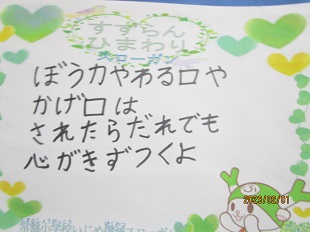 すずらん
ひまわり
スローガン
ぼう力やわる口や
かげ口は
されたらだれでも
心がきずつくよ
2023/02/01